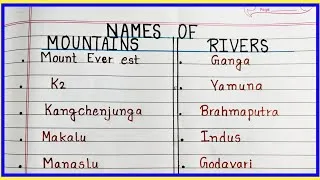 Page
NAMES OF
MOUNTAINS RIVERS
Mount Everest Ganga
K2 Yamuna
Kangchenjunga Brahmaputra
Makalu Indus
Manaslu Godavari